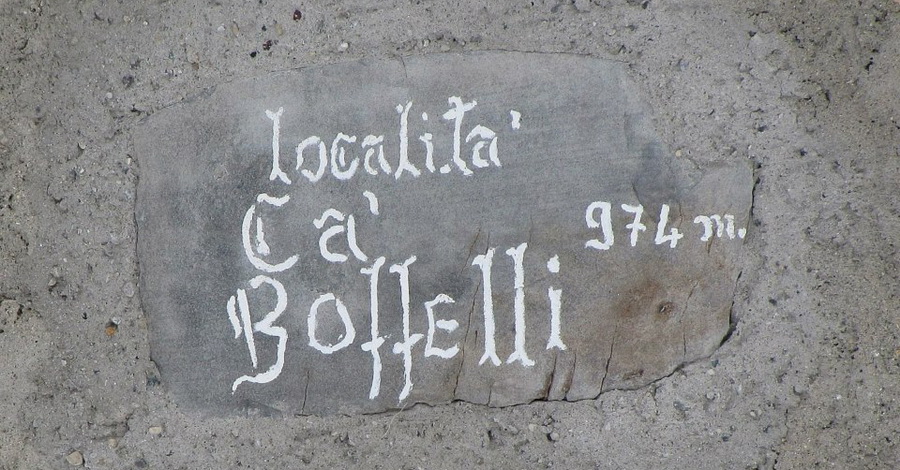 località
Cà
Boffelli
974 m.